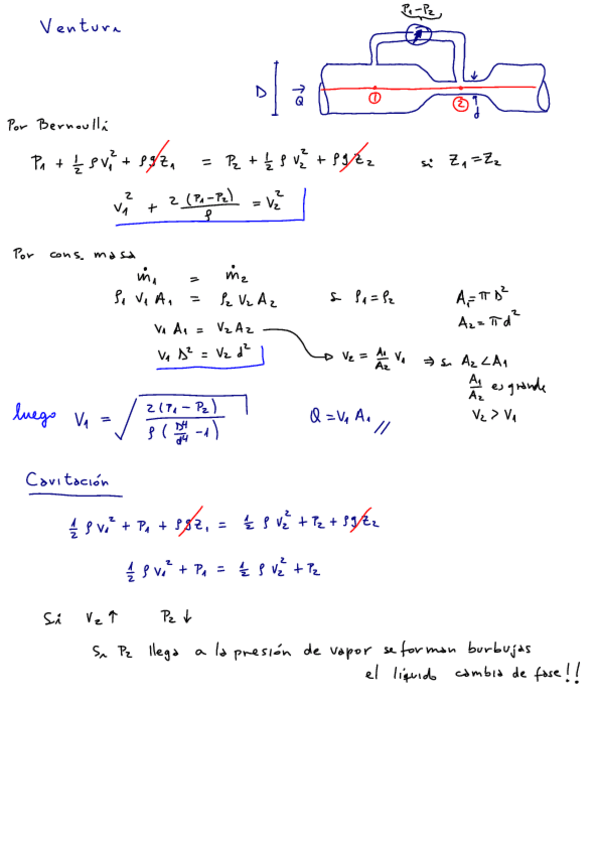 P₁-P₂
Ventura
D
Q
①
②
d
Por Bernoulli
P₁ + ½ ρ V₁² + ρgZ₁ = P₂ + ½ ρ V₂² + ρgZ₂ si Z₁=Z₂
V₁² + 2(P₁-P₂)/ρ = V₂²
Por cons. masa
ṁ₁ = ṁ₂
ρ₁ V₁ A₁ = ρ₂ V₂ A₂ si ρ₁=ρ₂ A₁=πD²
A₂=πd²
V₁ A₁ = V₂ A₂
V₁ D² = V₂ d² → V₂ = A₁/A₂ V₁ ⇒ si A₂<A₁
A₁/A₂ es grande
V₂ > V₁
luego V₁ = √(2(P₁-P₂)/(ρ(D⁴/d⁴ -1))) Q=V₁ A₁ //
Cavitación
½ ρ V₁² + P₁ + ρgZ₁ = ½ ρ V₂² + P₂ + ρgZ₂
½ ρ V₁² + P₁ = ½ ρ V₂² + P₂
Si V₂↑ P₂↓
Si P₂ llega a la presión de vapor se forman burbujas
el líquido cambia de fase!!